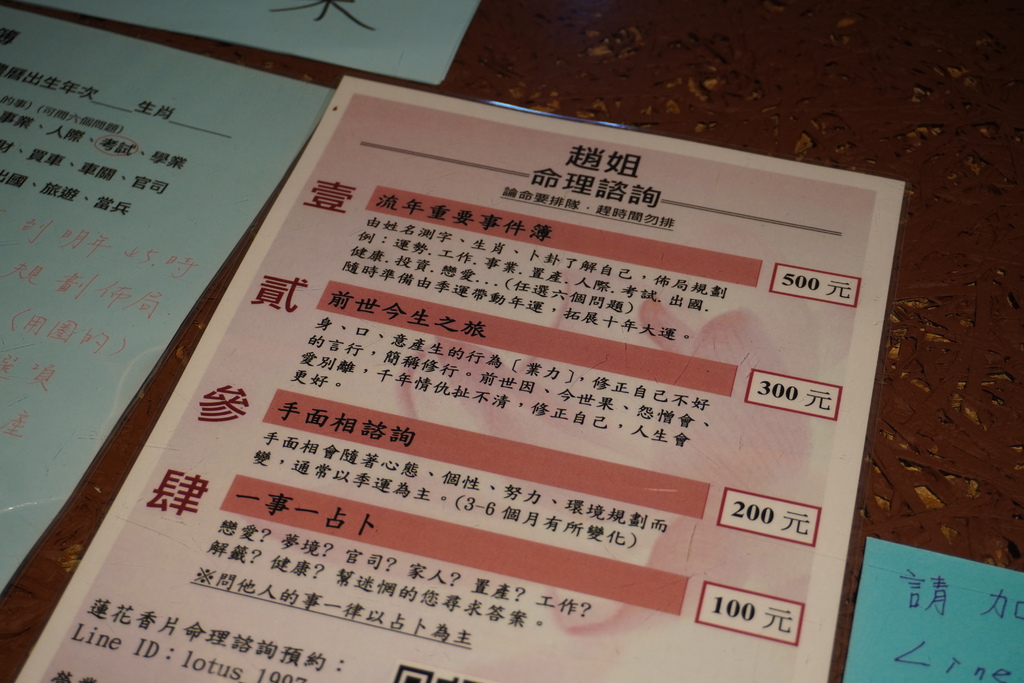 農曆出生年次___生肖_____
的事) (可問六個問題)
事業、人際、考試、學業
財、買車、車關、官司
出國、旅遊、當兵
到明年45.時
規劃佈局
(用圈的)
選項
產
趙姐
命理諮詢
論命要排隊．趕時間勿排
壹 流年重要事件簿
由姓名測字、生肖、卜卦了解自己，佈局規劃
例：運勢.工作.事業.置產.人際.考試.出國.
健康.投資.戀愛...(任選六個問題)
隨時準備由季運帶動年運，拓展十年大運。
500 元
貳 前世今生之旅
身、口、意產生的行為〔業力〕，修正自己不好
的言行，簡稱修行。前世因、今世果、怨憎會、
愛別離，千年情仇扯不清，修正自己，人生會
更好。
300 元
參 手面相諮詢
手面相會隨著心態、個性、努力、環境規劃而
變，通常以季運為主。(3-6 個月有所變化)
200 元
肆 一事一占卜
戀愛? 夢境? 官司? 家人? 置產? 工作?
解籤? 健康? 幫迷惘的您尋求答案。
※問他人的事一律以占卜為主
100 元
蓮花香片命理諮詢預約：
Line ID：lotus_1907
請加
Line